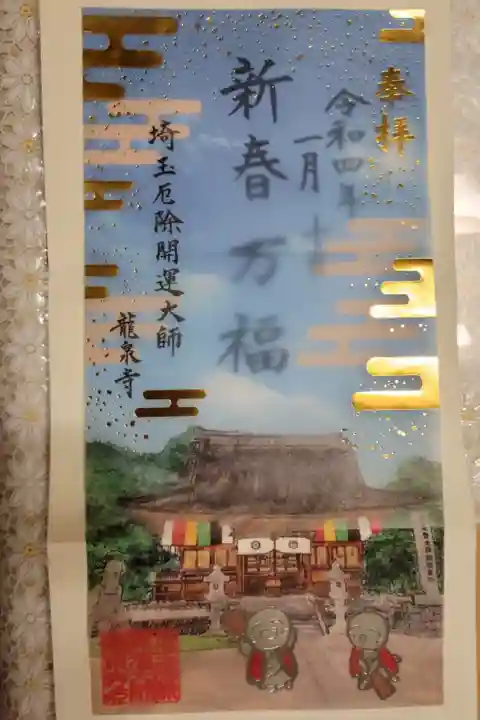 奉拝
令和四年
一月十
新春万福
埼玉厄除開運大師
龍泉寺